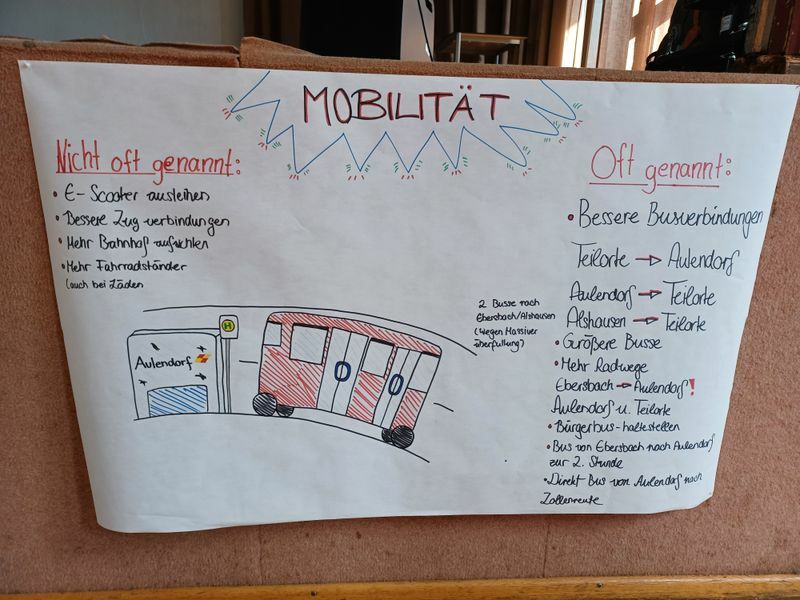 MOBILITÄT
Nicht oft genannt:
• E-Scooter ausleihen
• Bessere Zugverbindungen
• Mehr Bahnhof aufsichten
• Mehr Fahrradständer
(auch bei Läden
Oft genannt:
• Bessere Busverbindungen
Teilorte → Aulendorf
Aulendorf → Teilorte
Altshausen → Teilorte
• Größere Busse
• Mehr Radwege
Ebersbach → Aulendorf!
Aulendorf u. Teilorte
• Bürgerbus-haltestellen
• Bus von Ebersbach nach Aulendorf
zur 2. Stunde
• Direkt Bus von Aulendorf nach
Zollenreute
2 Busse nach
Ebersbach/Altshausen
(wegen Massiver
überfüllung)
H
Aulendorf